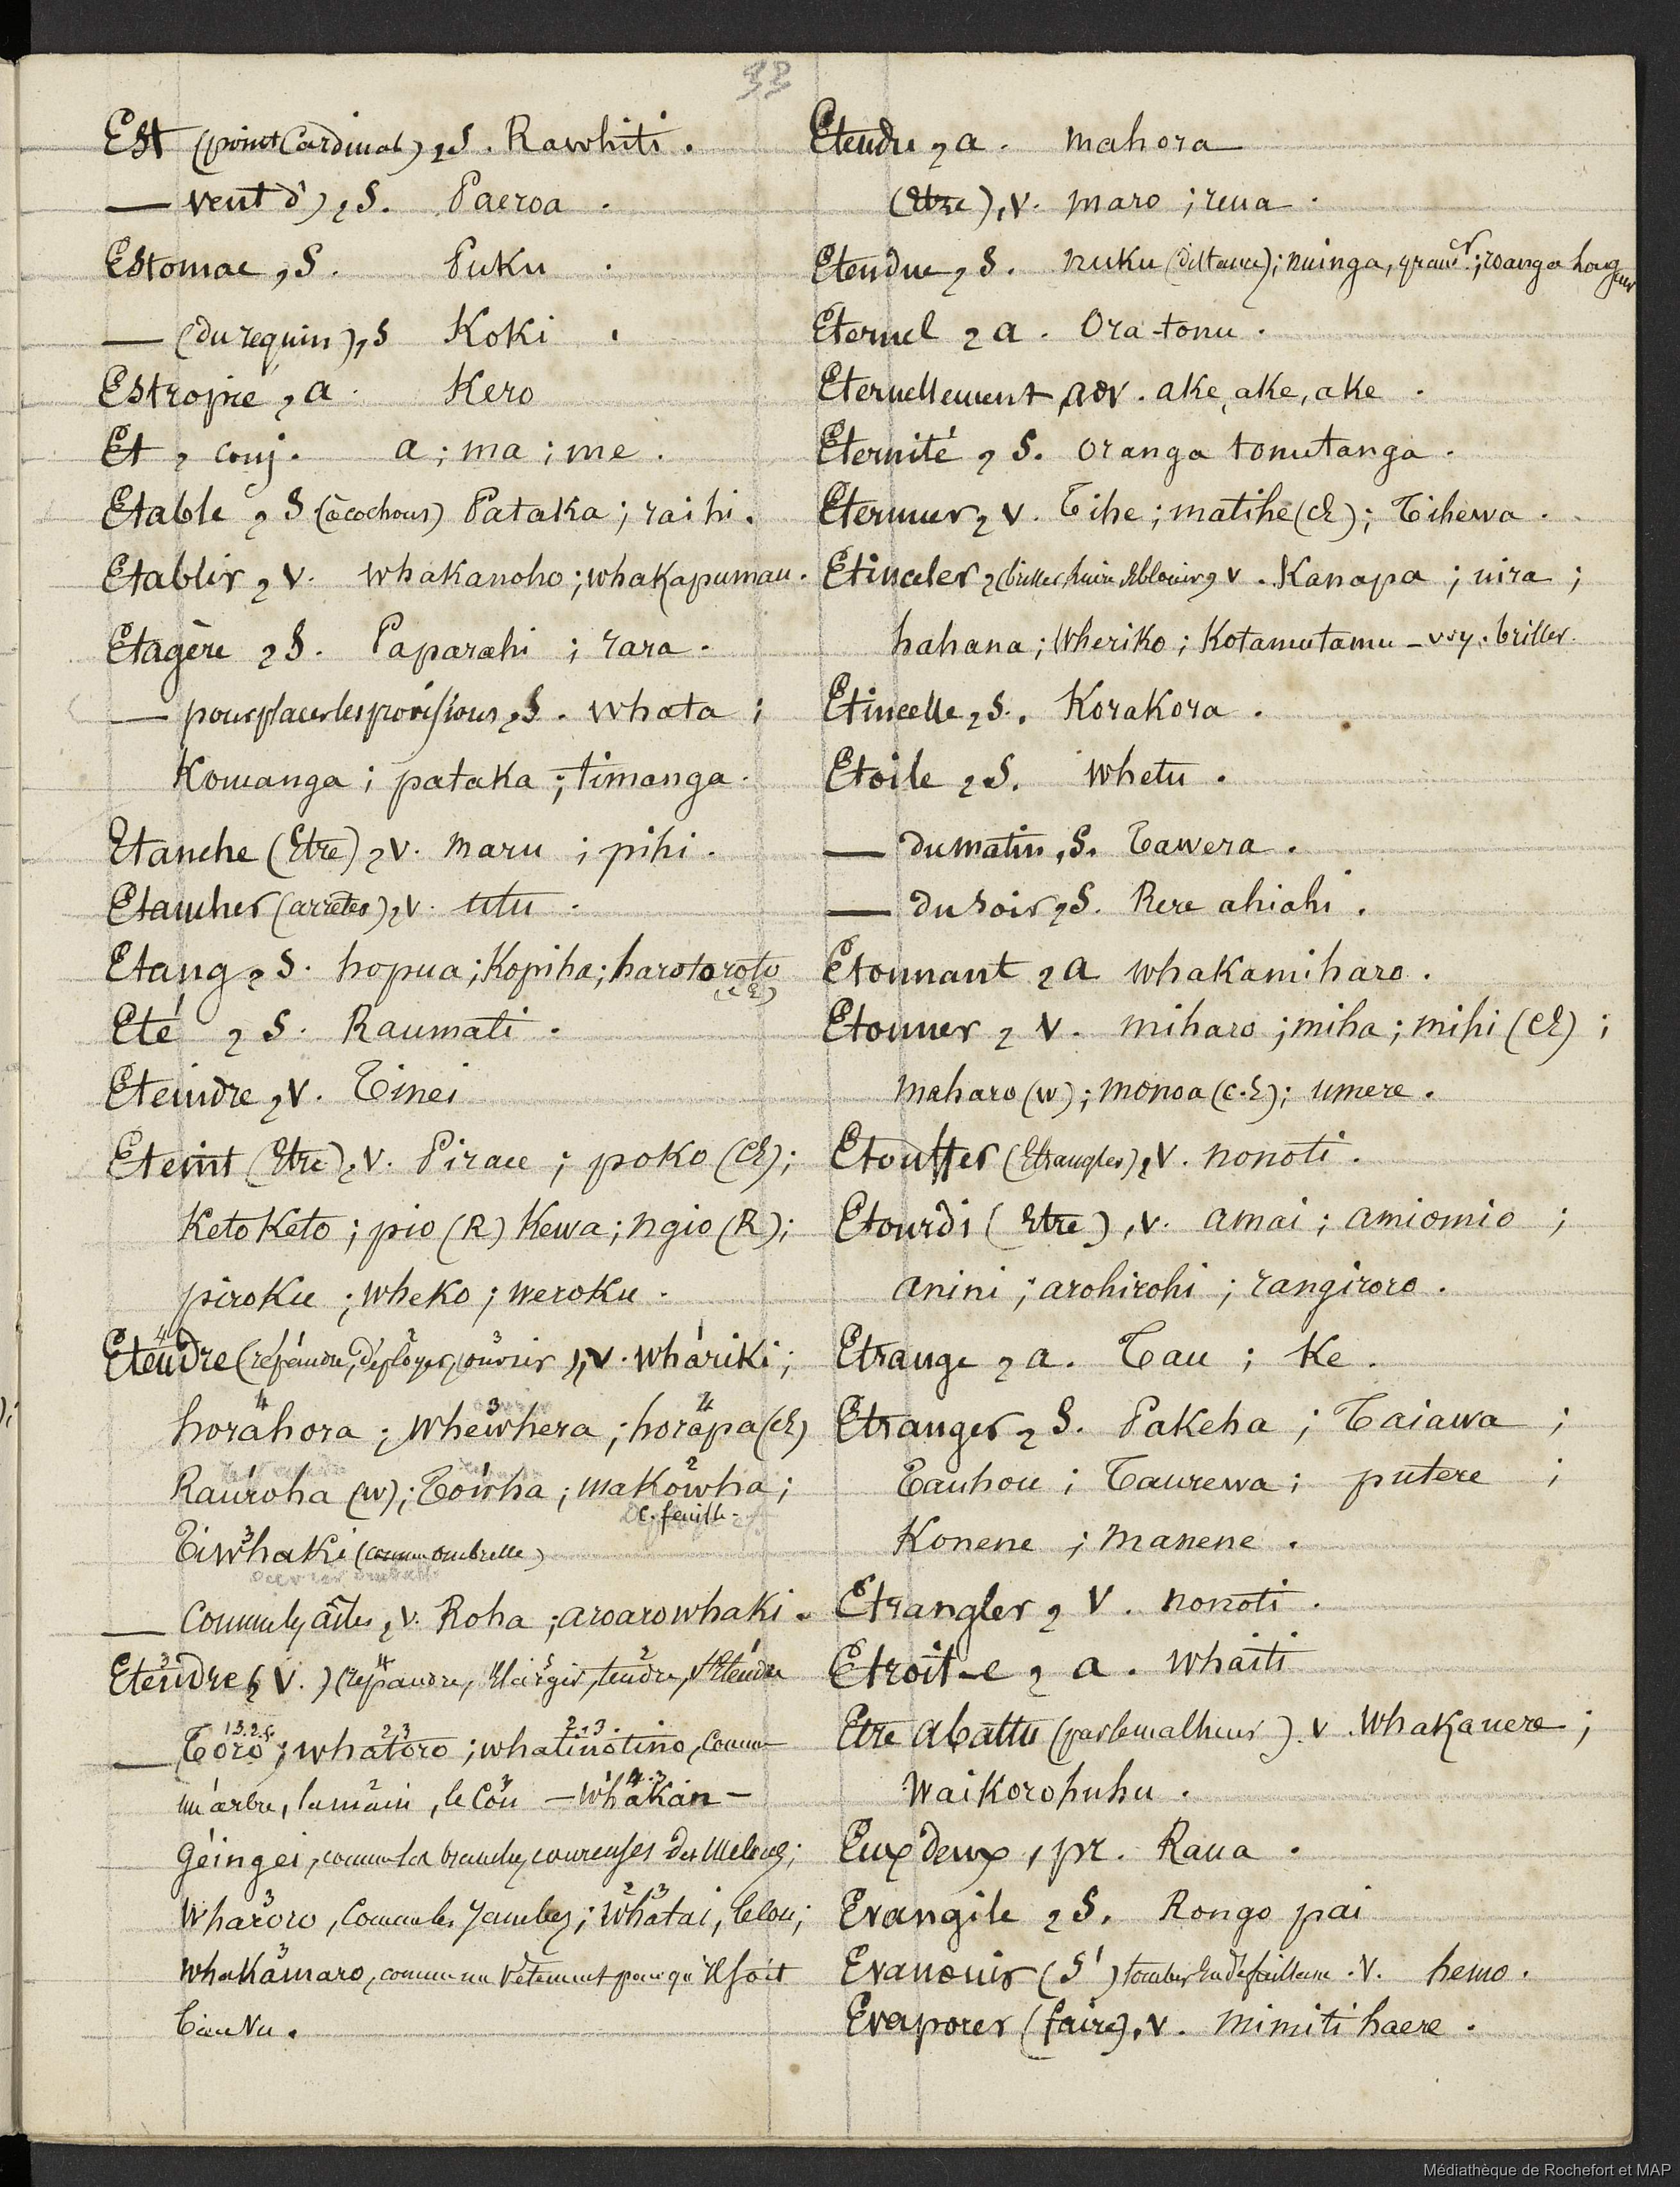 33
Est (point Cardinal), S. Rawhiti.
— vent d'), S. Paeroa.
Estomac, S. Puku.
— (du requin), S Koki.
Estropié, a. Kero
Et, conj. a; ma; me.
Etable, S (à cochons) Pataka; raihi.
Etablir, v. whakanoho; whakapumau.
Etagère, S. Paparahi; rara.
— pour placer les provisions, S. whata;
Komanga; pataka; timanga.
Etanche (Etre), v. maru; pihi.
Etancher (arrêter), v. utu.
Etang, S. hopua; Kopiha; harotoroto
(cE)
Eté, S. Raumati.
Eteindre, v. Tinei
Eteint (Etre), v. Pirau; poko (cE);
Keto Keto; pio (R) Kewa; ngio (R);
piroku; wheko; weroku.
Etendre (répandre, déployer, ouvrir), v. whariki;
horahora; whewhera; horapa (cE)
Rauroha (w); Towha; makowha;
c. feuille.
Tiwhaki (comme ombrelle)
— Comme les ailes, v. Roha; aroarowhaki.
Etendre (v.) (répandre, Elargir, tendre, s'Etendre
— Toro; whatoro; whatinotino, comme
un arbre, la main, le Cou — whakan-
geingei, comme les branches coureuses des Melons;
wharoro, Comme les Jambes; whatai, le Cou;
whakamaro, comme un vêtement pour qu'il soit
bien vu.
Etendu, a. mahora
(Etre), v. maro; reua.
Etendue, S. nuku (distance); nuinga, grandr.; roanga longueur
Eternel, a. Ora-tonu.
Eternellement, adv. ake, ake, ake.
Eternité, S. oranga tonutanga.
Eternuer, v. Tihe; matihe (cE); Tihewa.
Etinceler, (briller, luire, Eblouir), v. Kanapa; uira;
hahana; Wheriko; Kotamutamu – voy. briller.
Etincelle, S. KoraKora.
Etoile, S. whetu.
— du matin, S. Tawera.
— du soir, S. Rere ahiahi.
Etonnant, a whakamiharo.
Etonner, v. miharo; miha; mihi (cE);
maharo (w); monoa (c.E); umere.
Etouffer (Etrangler), v. nonoti.
Etourdi (Etre), v. amai; amiomio;
anini; arohirohi; rangiroro.
Etrange, a. Tau; Ke.
Etranger, S. Pakeha; Taiawa;
Tauhou; Taurewa; putere;
Konene; manene.
Etrangler, v. nonoti.
Etroit-e, a. whaiti
Etre abattu (par le malheur). v. Whakauere;
Waikorohuhu.
Eux deux, pr. Raua.
Evangile, S. Rongo pai
Evanouir (S') tomber En défaillance. v. hemo.
Evaporer (faire), v. mimiti haere.
Médiathèque de Rochefort et MAP